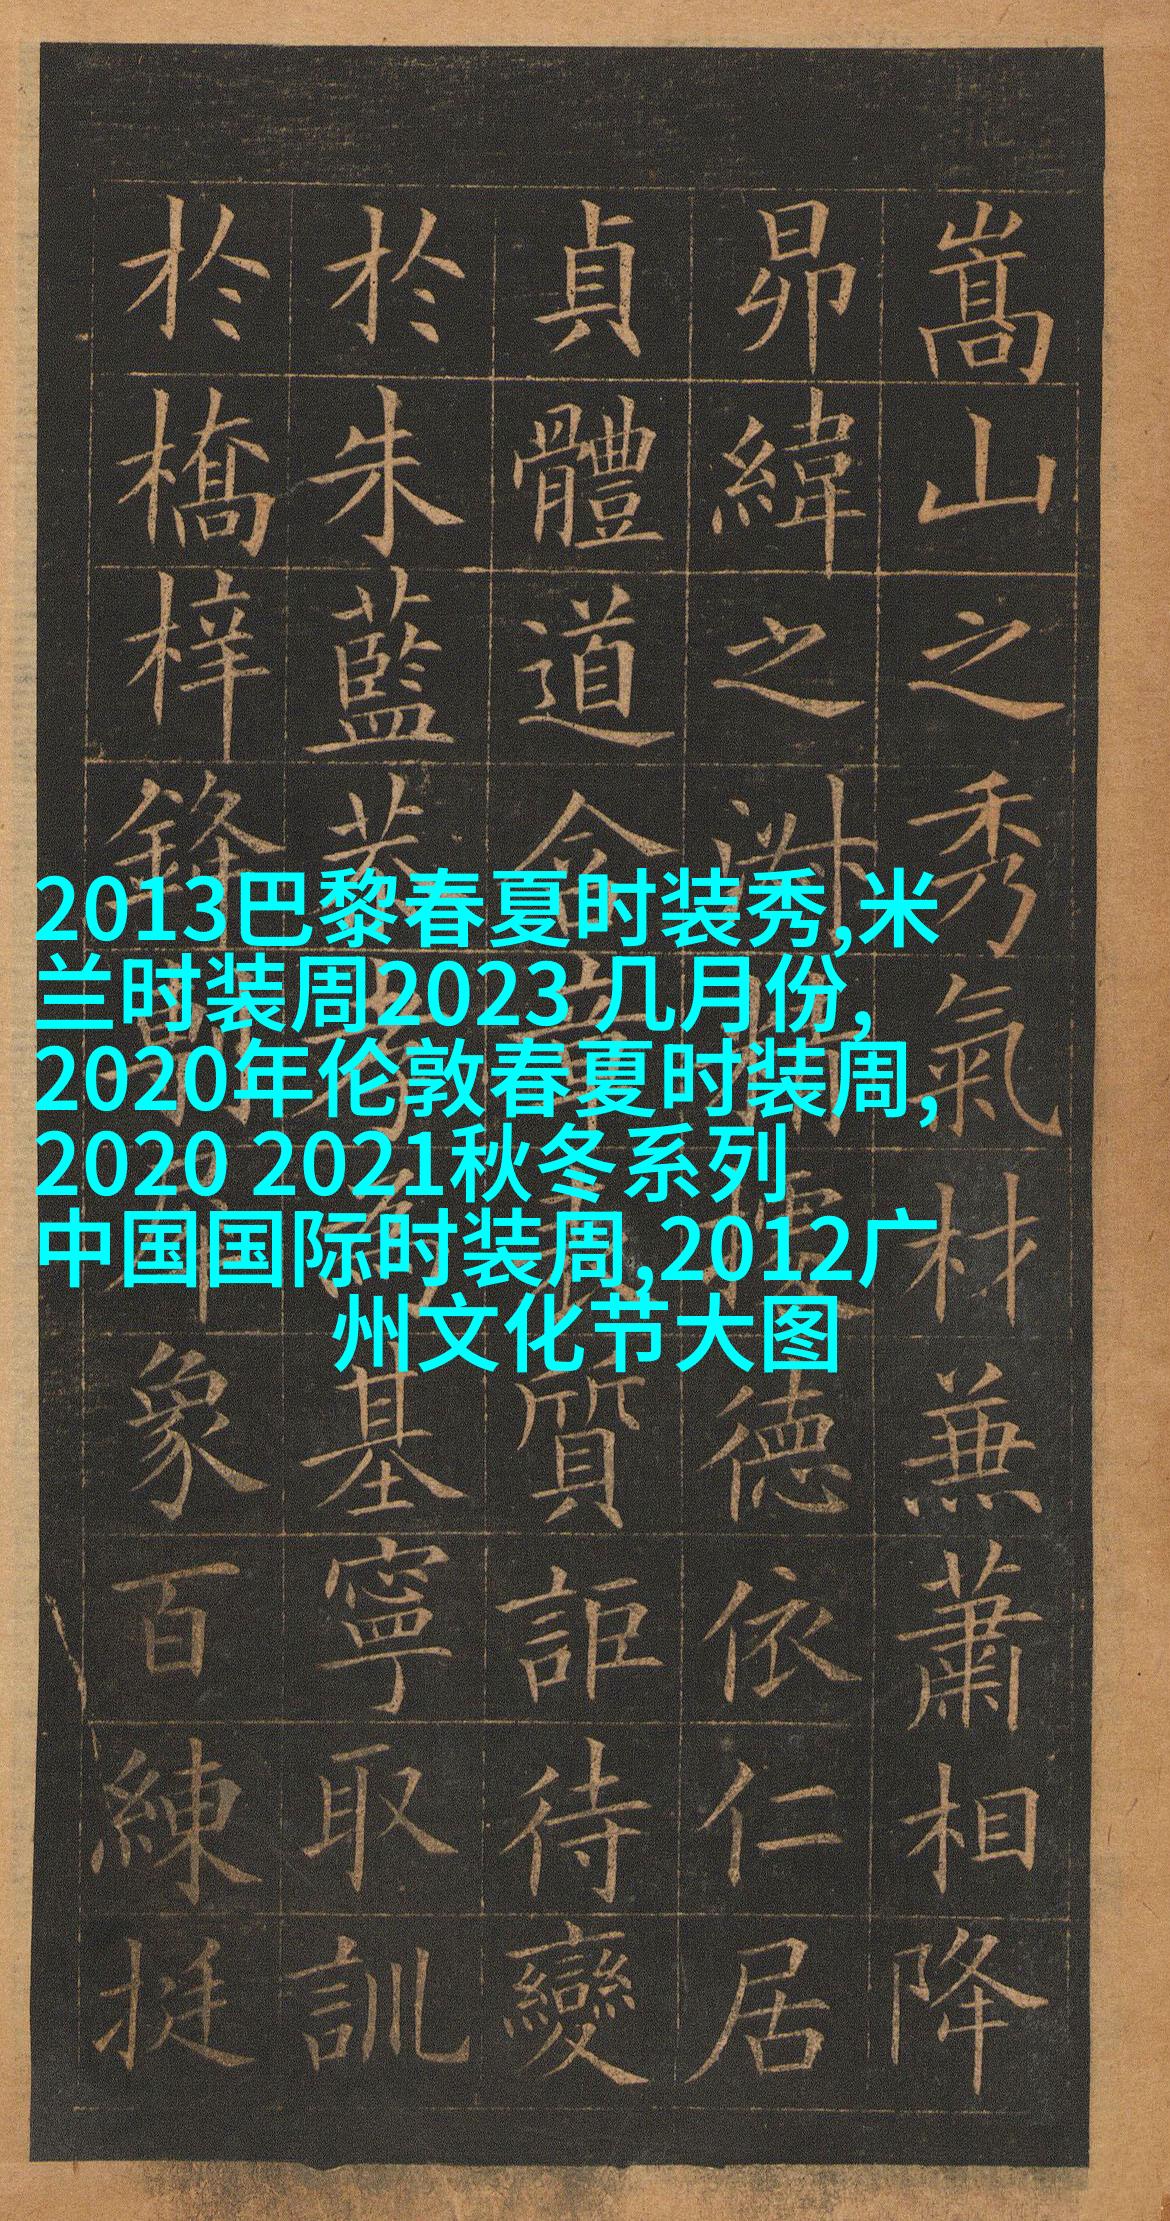 嵩山之秀氣材兼蕭相降
昴緯之據德依仁居
貞體道含章表質詎待變
於朱藍恭孝爲基寧取訓
於橋梓鋒犀象百練挺
2013巴黎春夏时装秀,米
兰时装周2023 几月份,
2020年伦敦春夏时装周,
2020 2021秋冬系列
中国国际时装周,2012广
州文化节大图